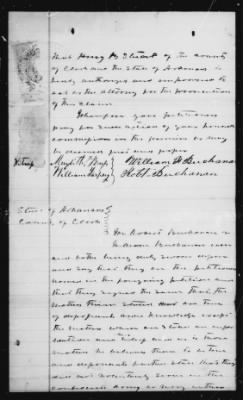 that Henry B Stuart of the County
of Clark and the State of Arkansas is
duly authorized and empowered to
act as the attorney for the prosecution
of this claim
Wherefore your petitioners
pray for such action of your honorable
commission in the premises as may
be deemed just and proper
William H Buchanan
Robt Buchanan
State of Arkansas
County of Clark
We Robert Buchanan &
William Buchanan
and both being duly sworn depose
and say that they are the petitioners
named in the foregoing petition and
that they signed the same that the
matters therein stated are true
of deponents own knowledge except
the matters which are stated on
information and belief and as to those
matters he believes them to be true
and deponents further state that they
did not voluntarily serve in the
confederate army or navy either